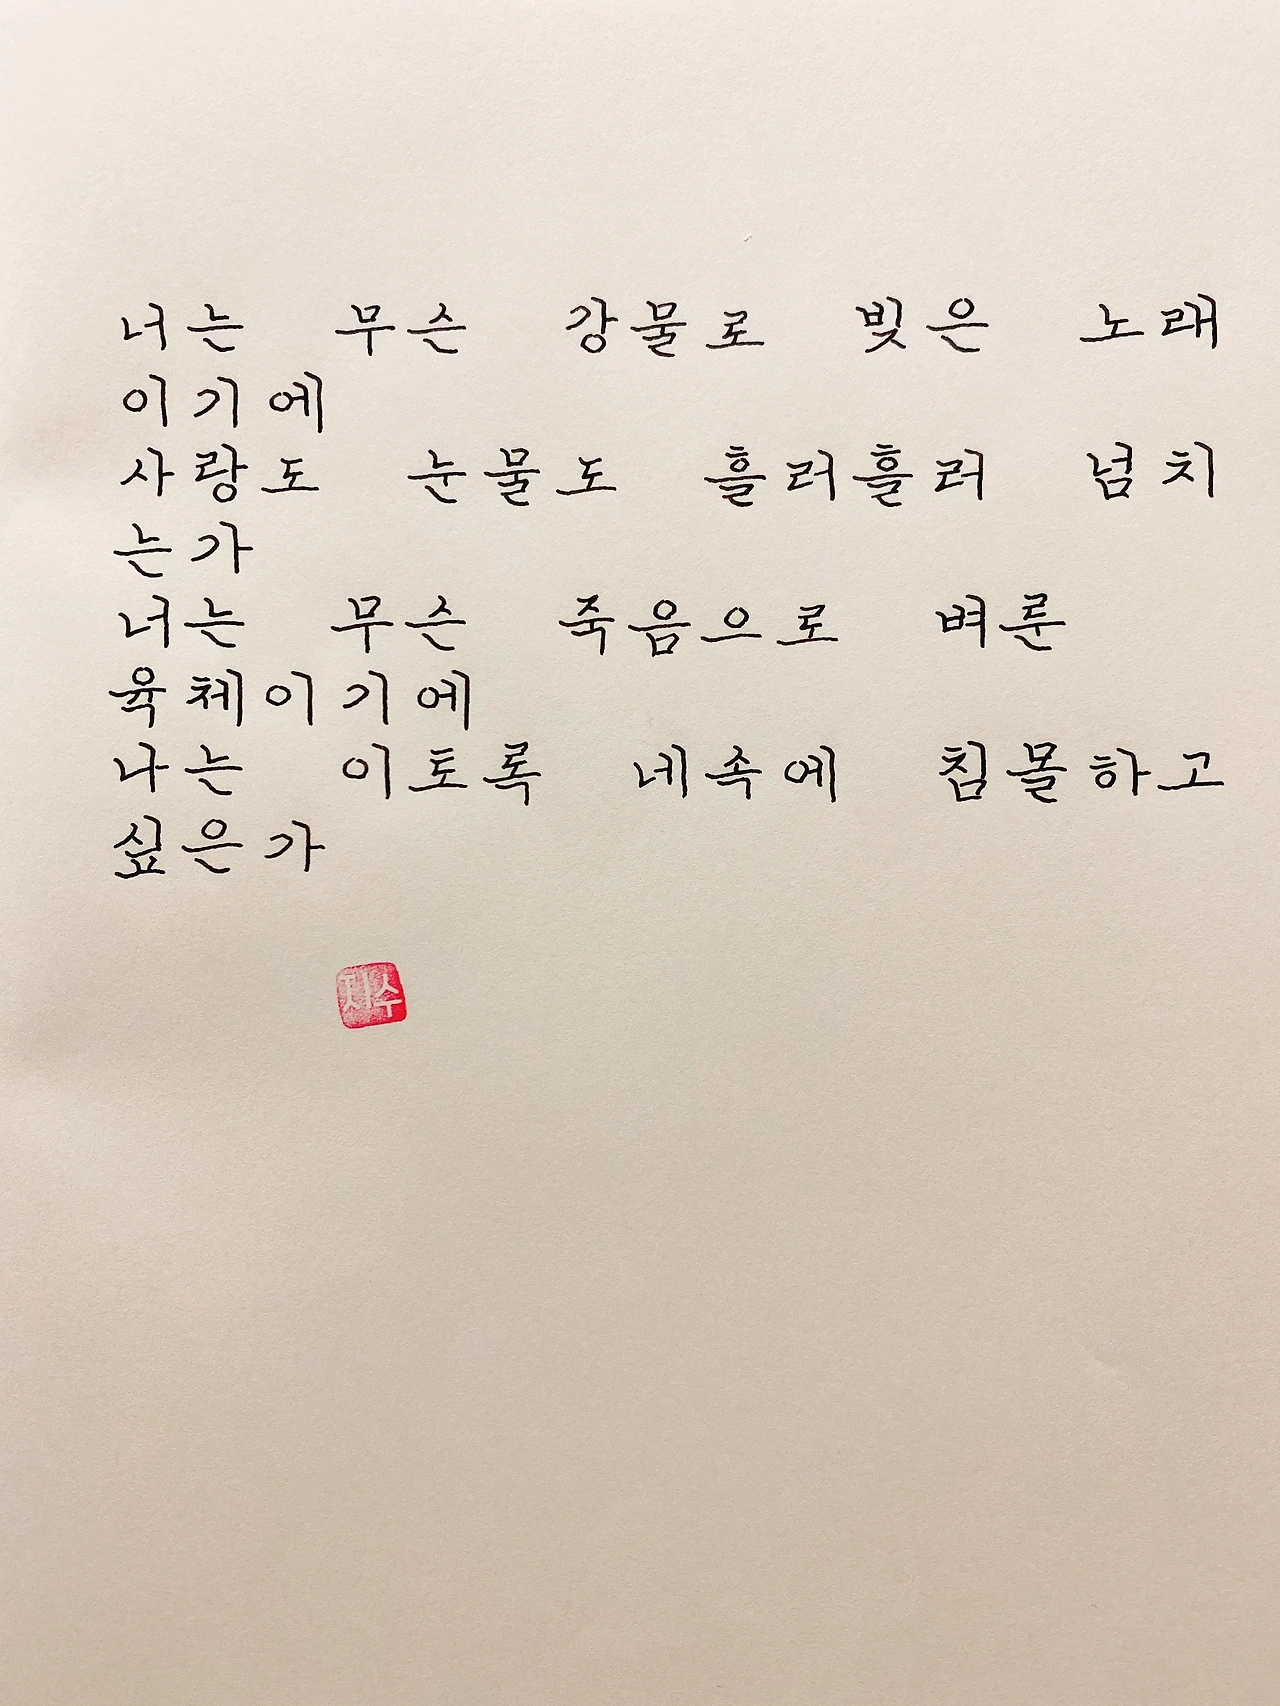 너는 무슨 강물로 빚은 노래
이기에
사랑도 눈물도 흘러흘러 넘치
는가
너는 무슨 죽음으로 벼룬
육체이기에
나는 이토록 네속에 침몰하고
싶은가